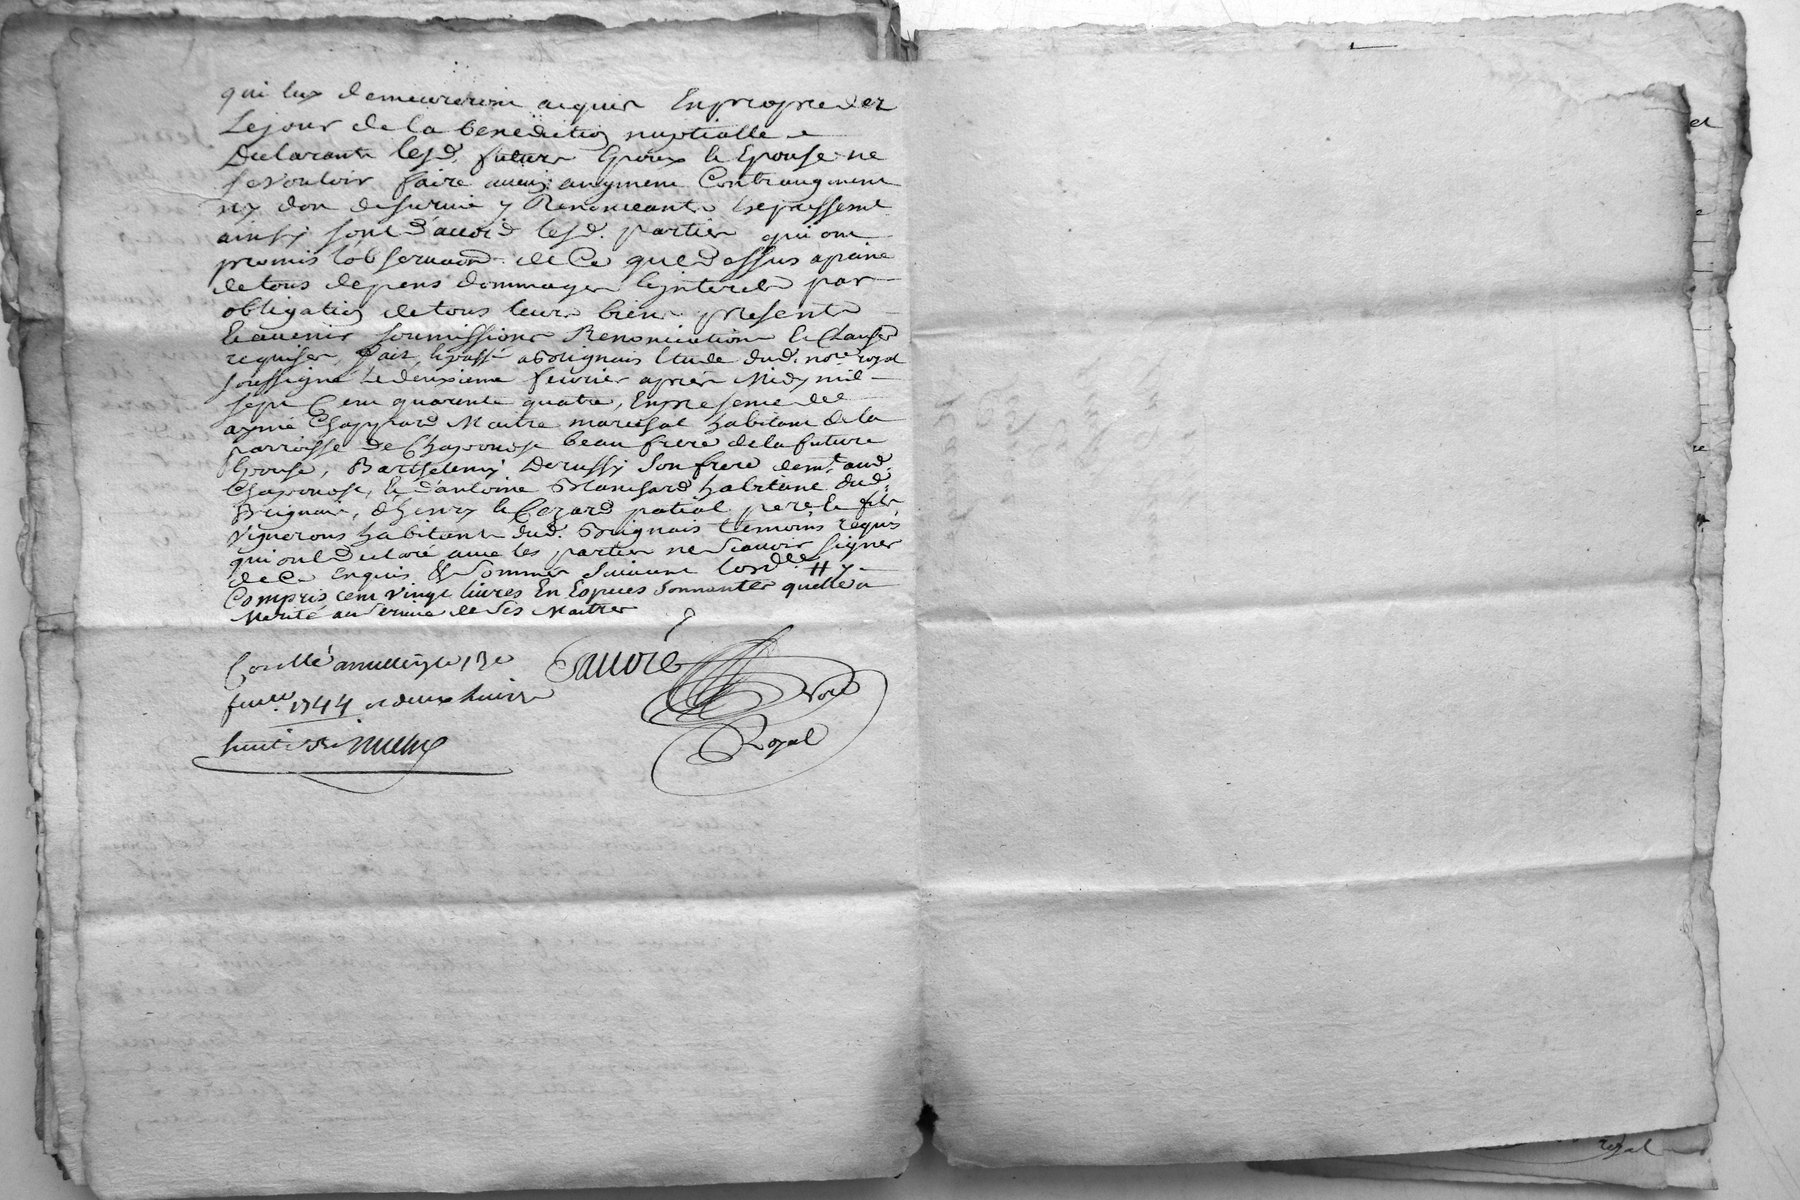 qui luy demeureront acquis En propre dez
Le jour de la benediction nuptialle
Declarants lesd. futurs Epoux & Epouse ne
se vouloir faire aucun augment Contraugment
ny don de survie y Renonceants Expressemt
ainsy sont d'accord lesd. parties qui ont
promis l'observaon. de Ce que dessus a peine
de tous depens dommages & jnterets par
obligation de tous leurs biens presents
& avenir soumissions Renonciations & Clauses
requises, fait & passé a Brignais Etude dud. nore. royal
soussigné Le deuxieme fevrier après Midy mil
sept Cent quarente quatre, En presence de
aymé Chappard Maitre marechal habitant de la
parroisse De Chaponost beau frere de la future
Epouse, Barthelemy Derussy son frere demt. aud.
Chaponost, & d'antoine Blanchard habitant dud.
Brignais, d'henry & Cezard patial pere & fils
vignerons habitants dud. Brignais temoins requis
qui ont declaré avec les parties ne Scavoir signer
de Ce Enquis & Sommés Suivant l'ordce. # y
Compris cent vingt livres En Especes Sonnantes quelle a
Merité au Service de Ses Maitres
Conllé a Millery le 13e
fuer. 1744 et deux livres
Sauvé
nore
Royal